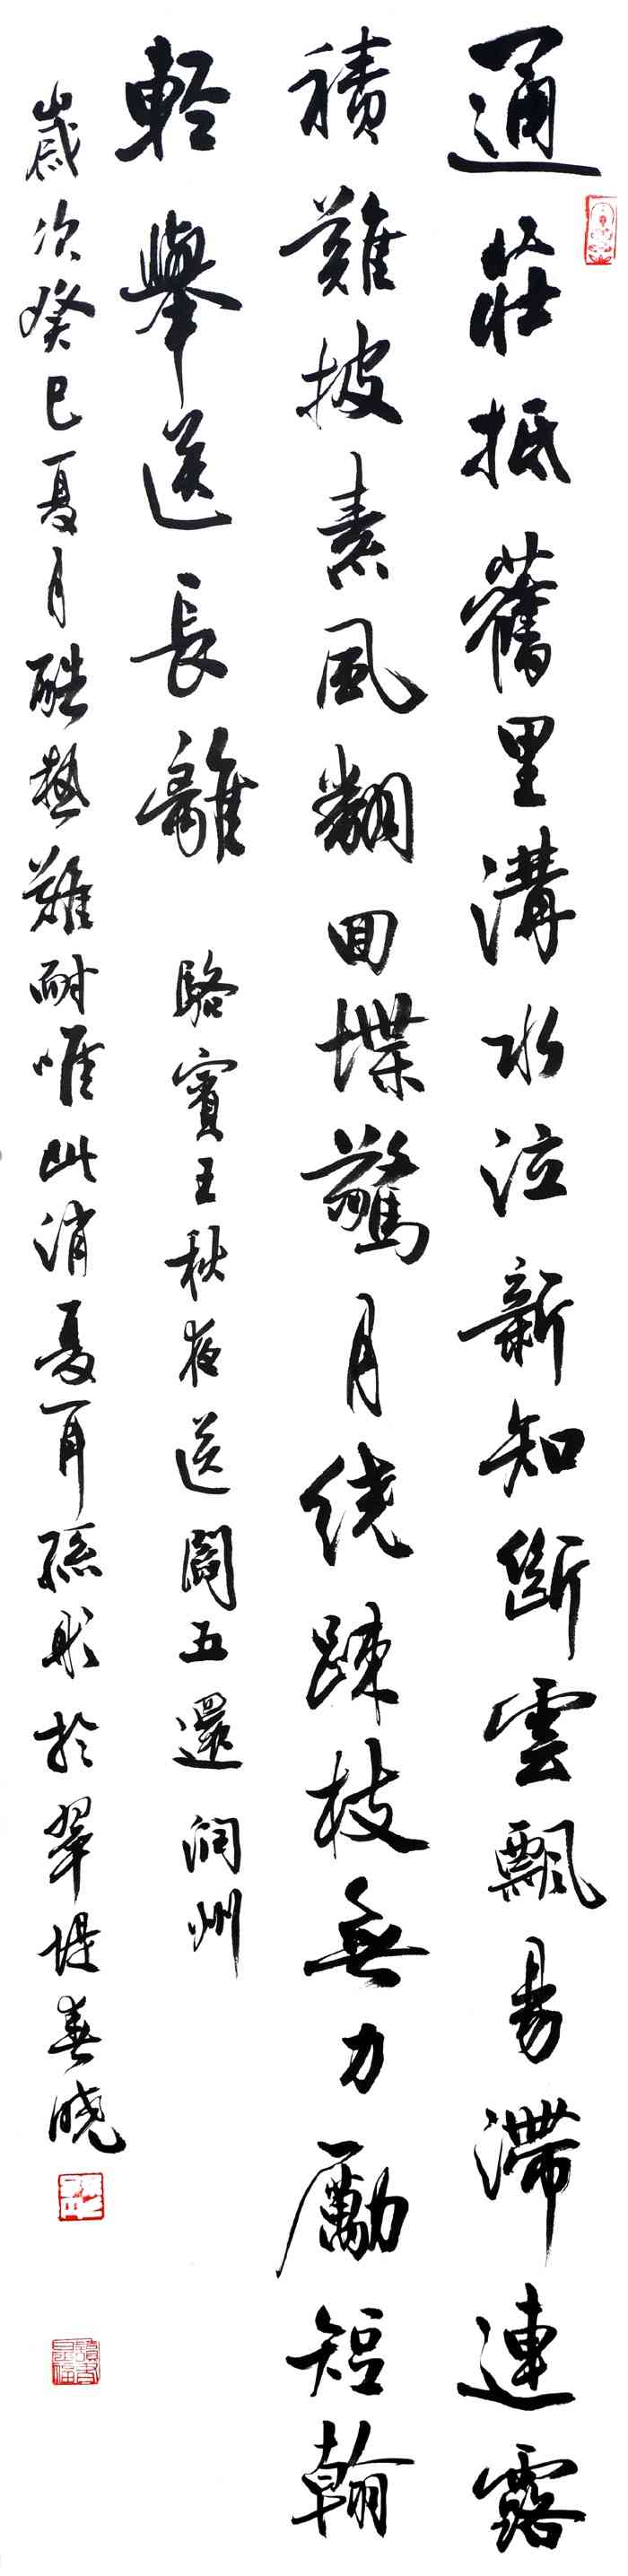 通莊抵舊里溝水泣新知斷雲飄易滯連露
積難披素風翻回堞驚月繞踈枝無力勵短翰
輕舉送長離 駱賓王秋夜送閻五還潤州
歲次癸巳夏月酷熱難耐唯此消夏耳孫彤於翠堤春曉